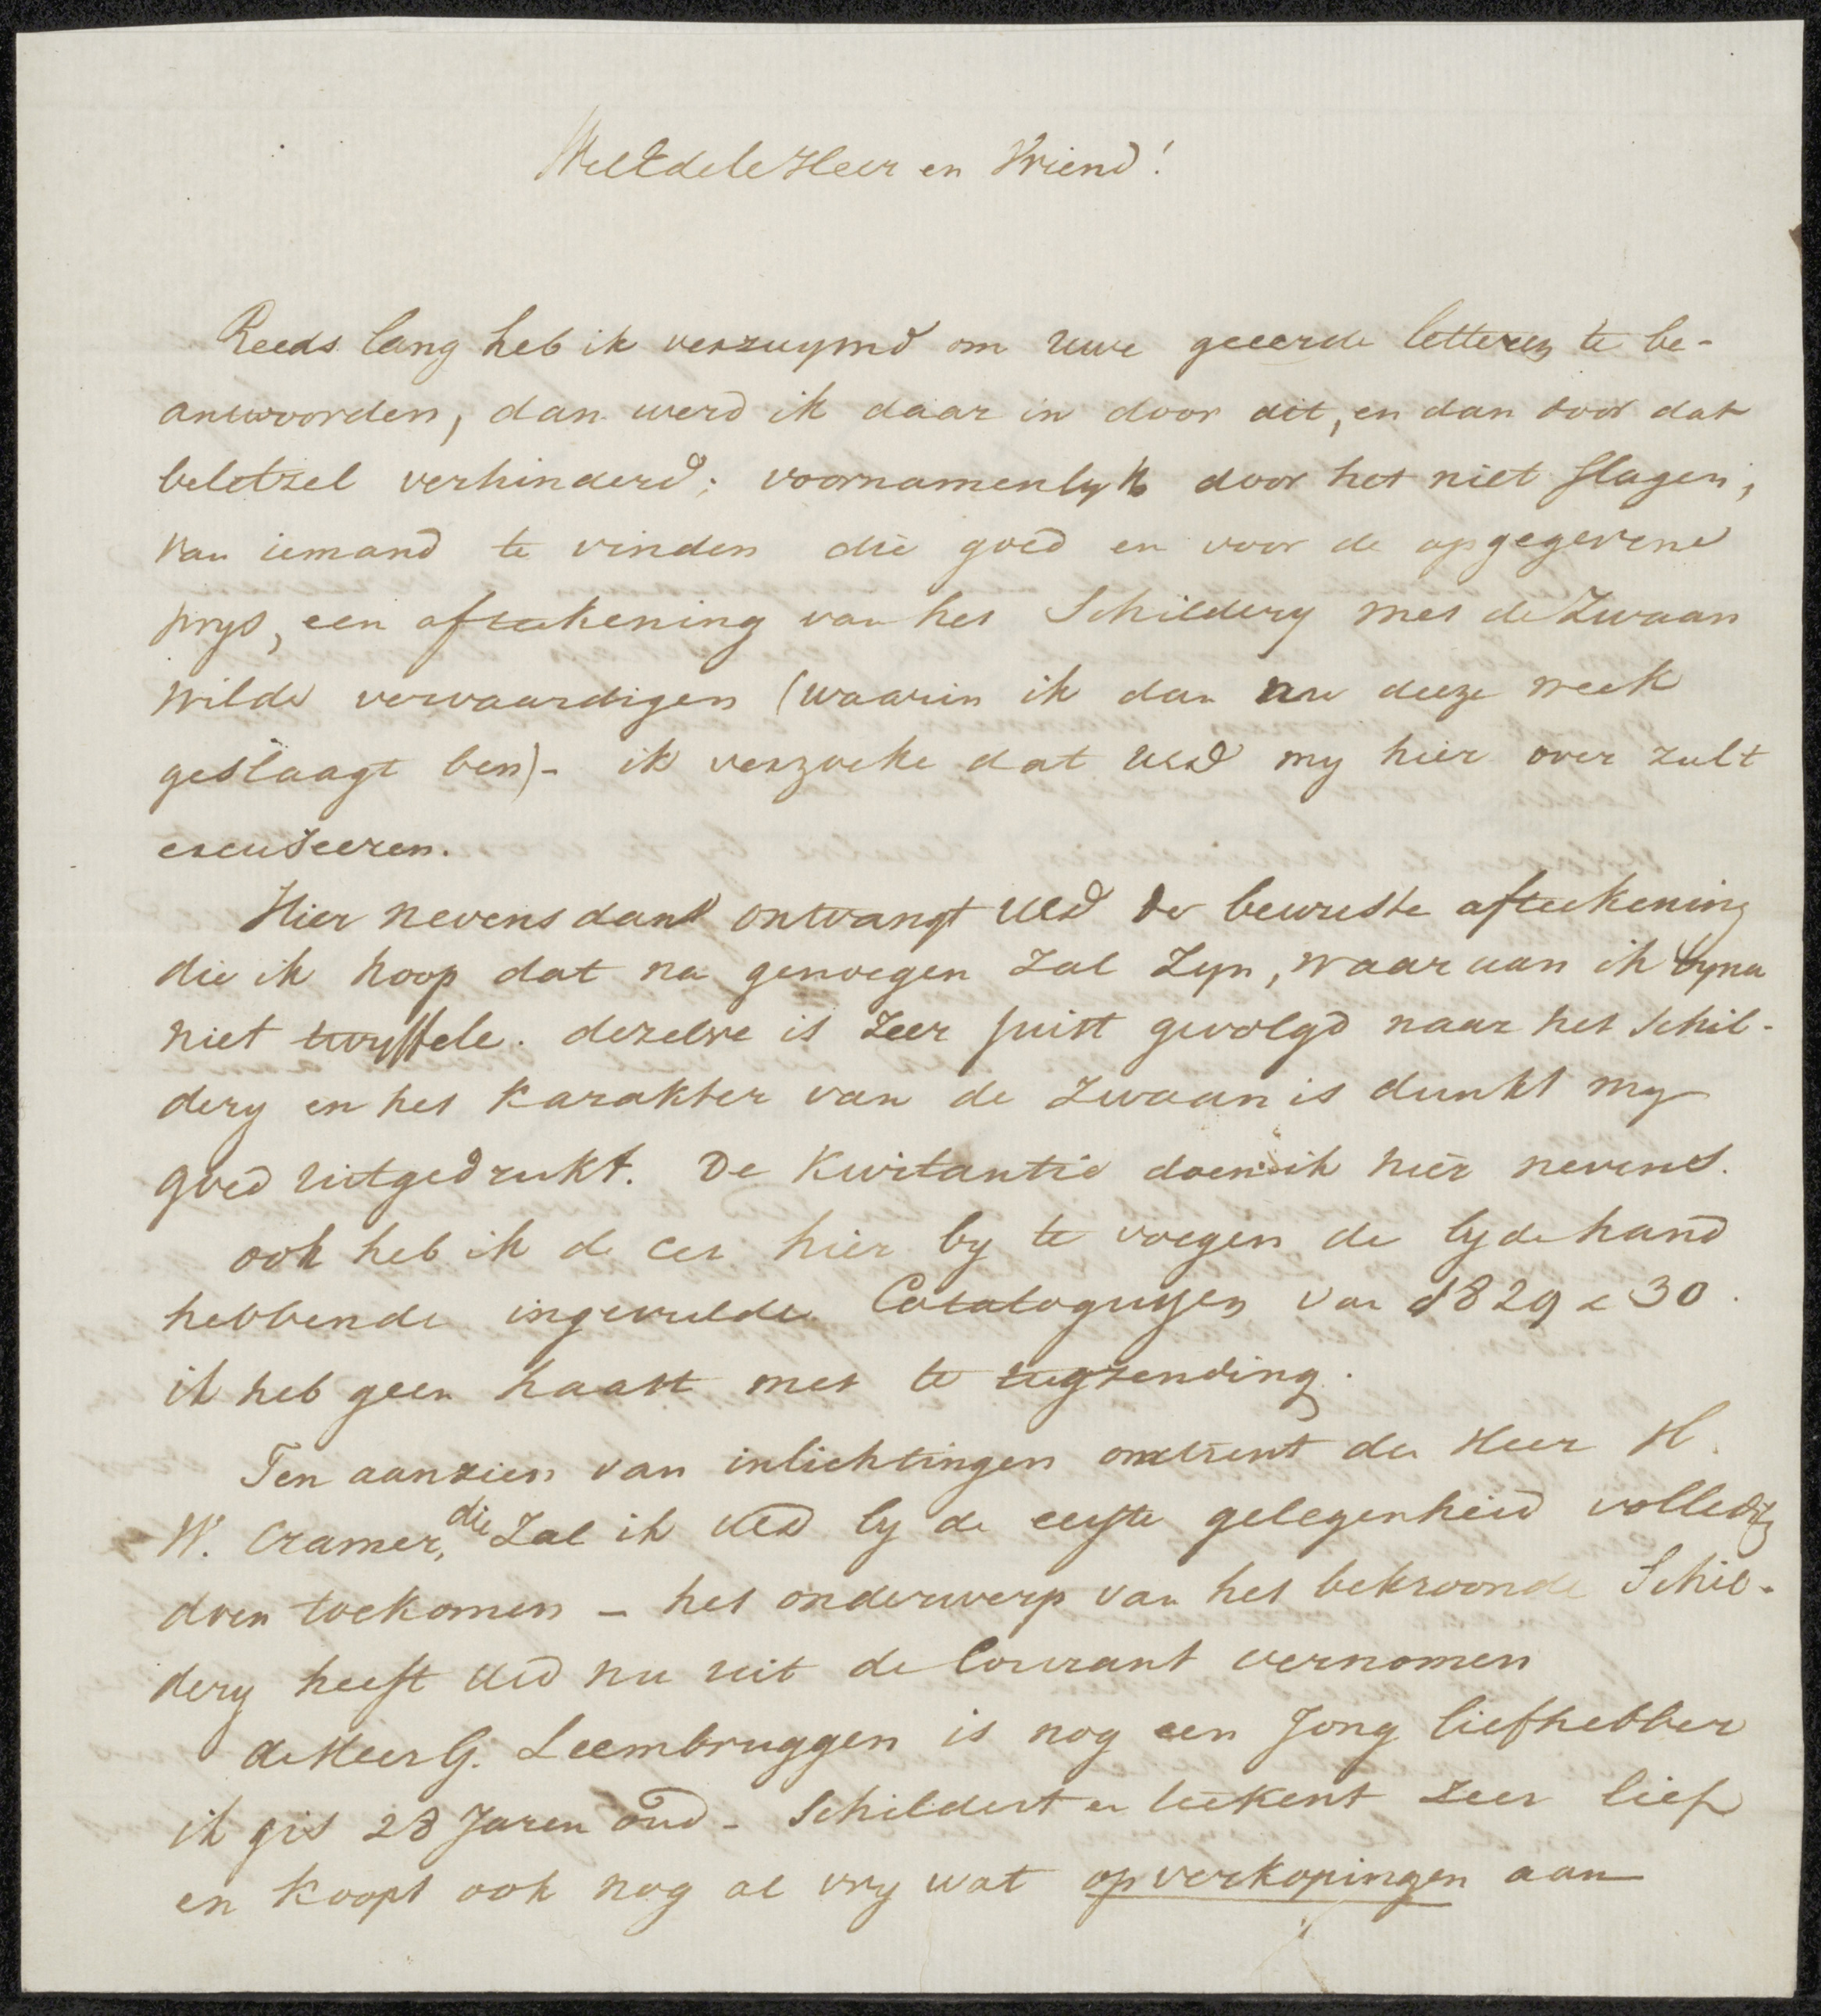 WelEdele Heer en Vriend!
Reeds lang heb ik verzuymd om uwe geeerde letteren te be-
antwoorden, dan werd ik daar in door dit, en dan door dat
beletzel verhinderd; voornamenlyk door het niet slagen,
van iemand te vinden die goed en voor de opgegevene
prys, een afteekening van het Schildery met de Zwaan
wilde vervaardigen (waarin ik dan nu deeze week
geslaagt ben) - ik verzoeke dat UEd my hier over zult
excuseeren.
Hier nevens dank ontvangt UEd de bewuste afteekening
die ik hoop dat na genoegen zal zyn, waar aan ik byna
niet twyffele. dezelve is zeer juist gevolgd naar het Schil-
dery en het karakter van de zwaan is dunkt my
goed uitgedrukt. De Kwitantie doen ik hier nevens.
ook heb ik de eer hier by te voegen de by de hand
hebbende ingevulde Catalogussen van 1829 & 30.
ik heb geen haast met te rugzending.
Ten aanzien van inlichtingen omtrent den Heer H.
W. Cramer, die zal ik UEd by de eerste gelegenheid volledig
doen toekomen - het onderwerp van het bekroonde Schil-
dery heeft UEd nu uit de Courant vernomen
de Heer G. Leembruggen is nog een Jong liefhebber
ik gis 28 Jaren oud - Schildert en teekent zeer lief
en koopt ook nog al vry wat op verkopingen aan